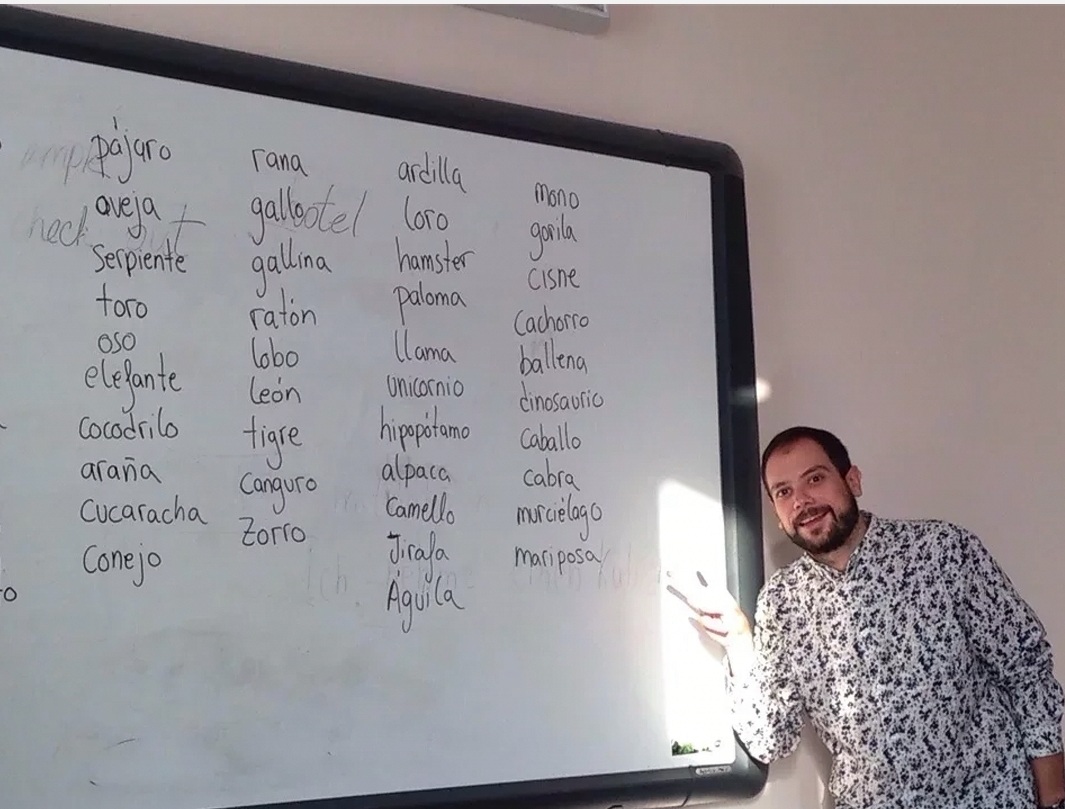 pájaro
oveja
serpiente
toro
oso
elefante
cocodrilo
araña
cucaracha
conejo
rana
gallo
gallina
ratón
lobo
león
tigre
canguro
zorro
ardilla
loro
hamster
paloma
llama
unicornio
hipopótamo
alpaca
camello
Jirafa
Águila
mono
gorila
cisne
cachorro
ballena
dinosaurio
caballo
cabra
murciélago
mariposa